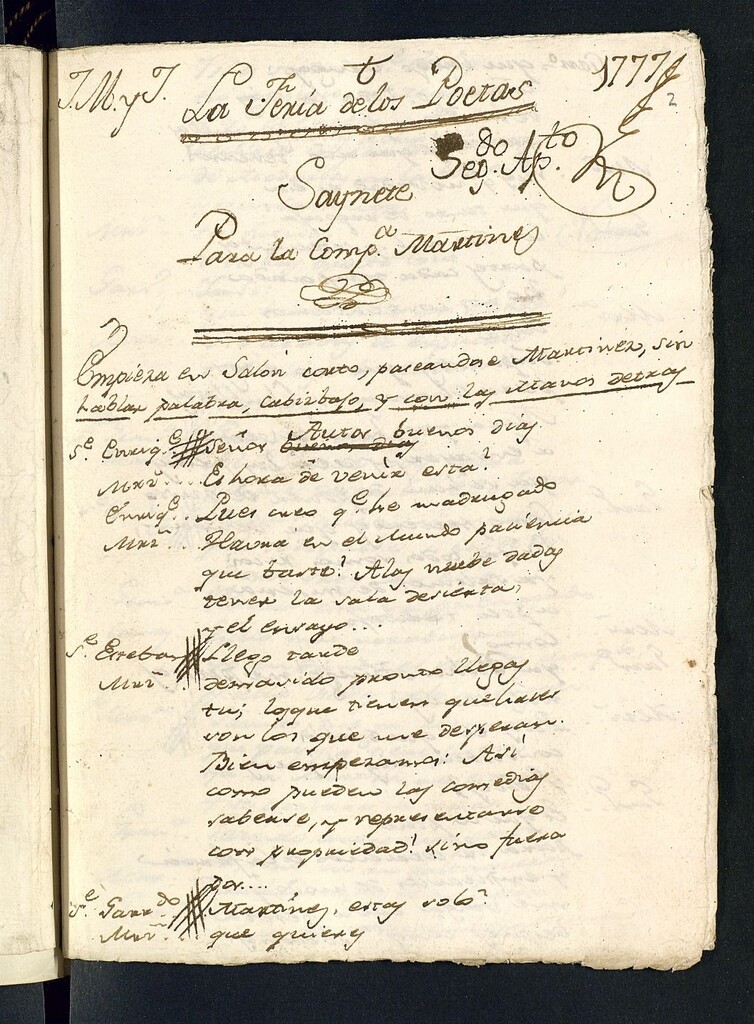 J. M. y J. t 1777
2
La Feria de los Poetas
Seg.do Ap.to
Saynete
Para la Comp.a Martinez
Empieza en Salon corto, paseandose Martinez, sin
hablar palabra, cabizbajo, y con las Manos detras
S.e Enriq.e Señor Autor buenos dias
buenos dias
Mrz.. Es hora de venir esta?
Enriq.e.. Pues creo q.e he madrugado
Mrz.. Havrá en el Mundo paciencia
que baste! A las nuebe dadas
tener la sala desierta,
y el ensayo...
S.e Esteban Llego tarde
Mrz.. demasiado pronto llegas
tu; los que tienen que hacer
son los que me desperan.
Bien empezamos! Asi
como pueden las comedias
saberse, y representarse
con propriedad! sino fuera
por....
S.e Garr.do Martinez, estas solo?
Mrz.. que quieres